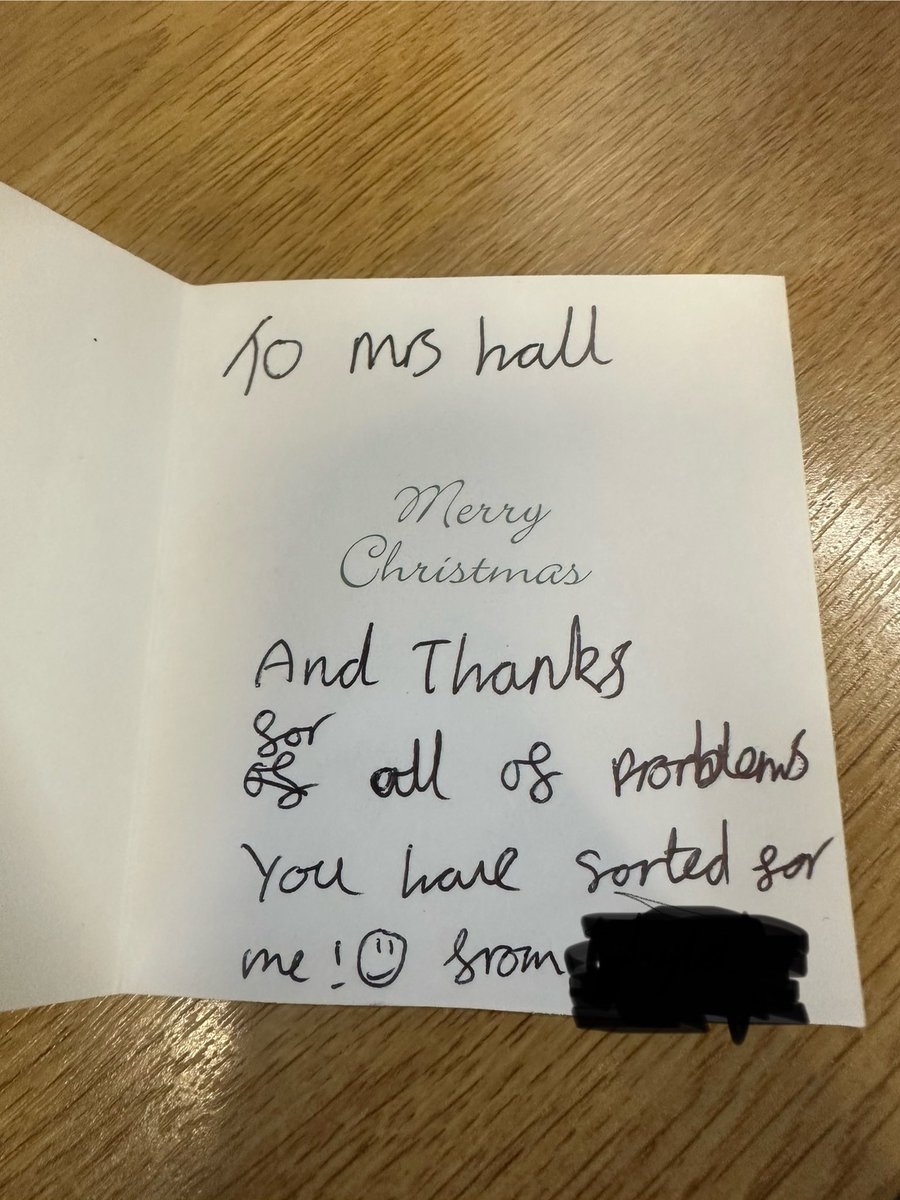 To Mrs hall
Merry
Christmas
And Thanks
for
of all of prorblems
You have sorted for
me! from